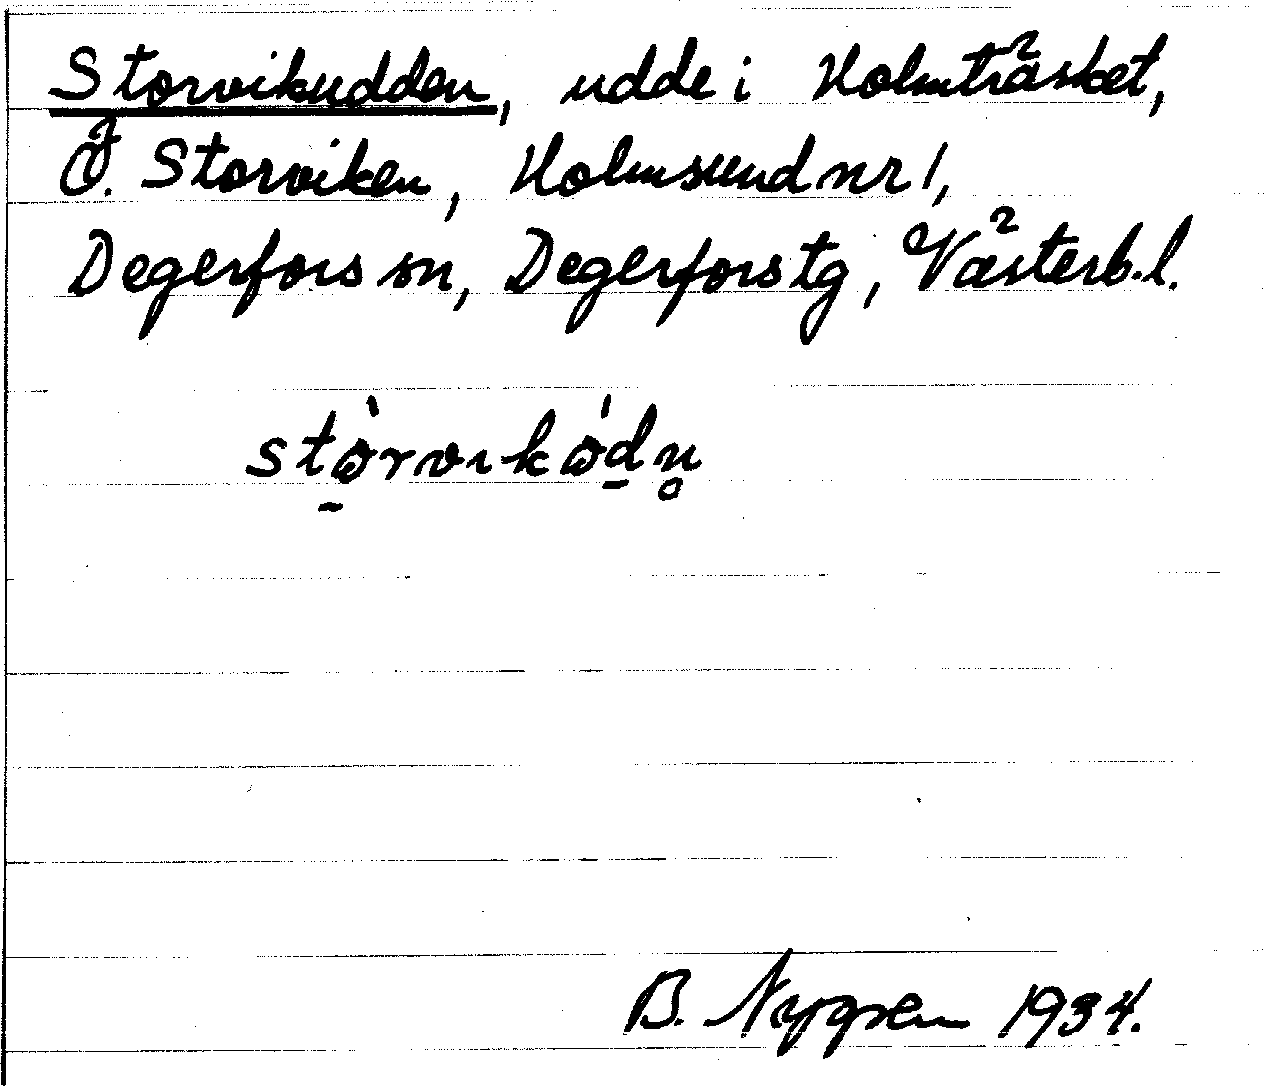 Storvikudden, udde i Holmträsket,
Ö. Storviken, Holmsund nr 1,
Degerfors sn, Degerfors tg, Västerb. l.
stòrvikòdn̥
B. Nygren 1934.